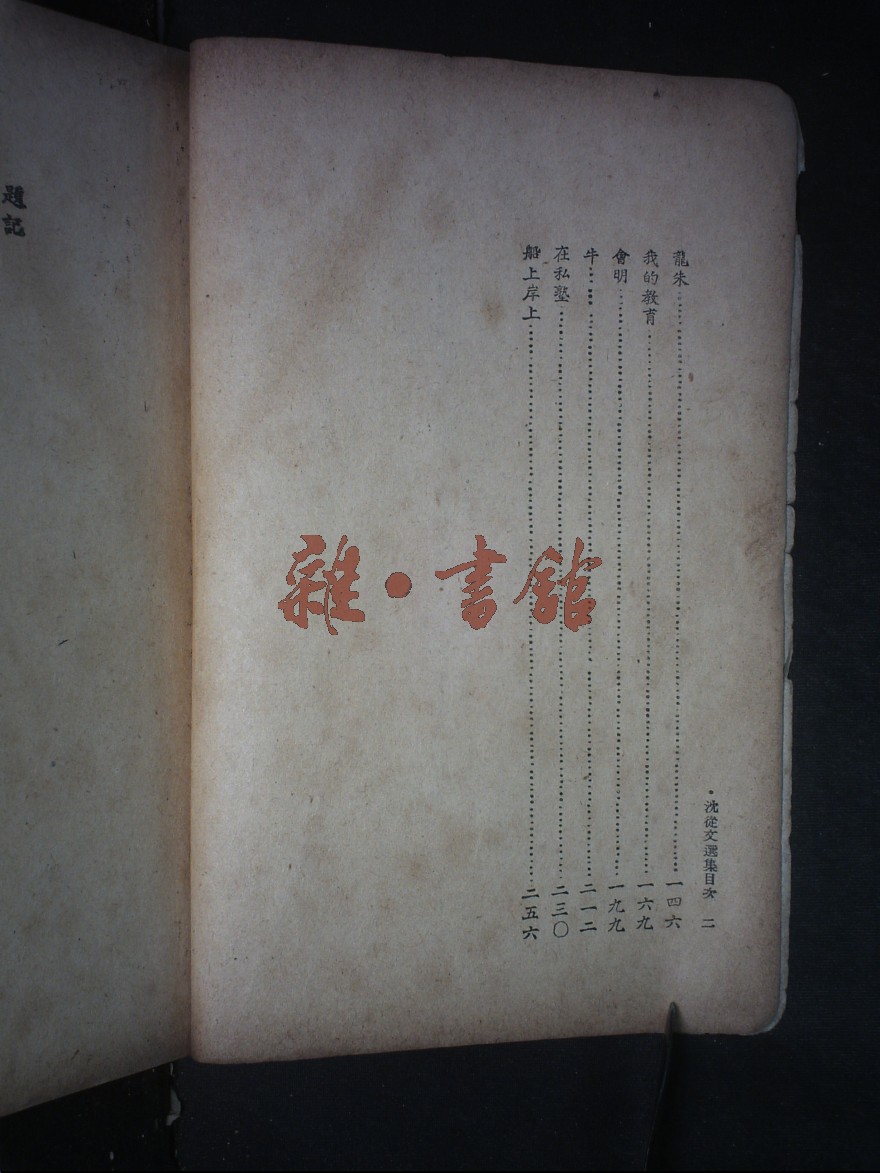 •沈從文選集目次 二
龍朱……一四六
我的教育……一六九
會明……一九九
牛……二一二
在私塾……二三〇
船上岸上……二五六
題記
雜•書館